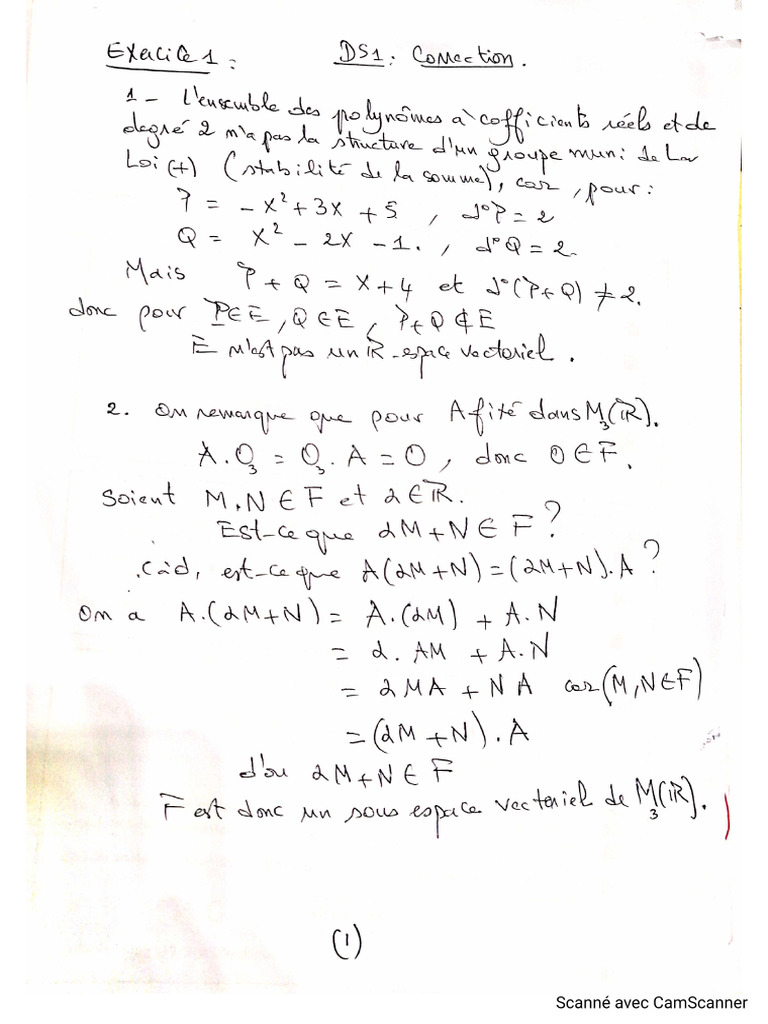 Exercice 1 : DS1 : Correction.
1 - L'ensemble des polynômes à cofficients réels et de
degré 2 n'a pas la structure d'un groupe muni de la
Loi (+) (stabilité de la somme), car, pour :
P = - X² + 3X + 5 , d°P = 2
Q = X² - 2X - 1. , d°Q = 2.
Mais P + Q = X + 4 et d°(P+Q) ≠ 2.
donc pour P∈E , Q∈E , P+Q ∉ E
E n'est pas un ℝ-espace vectoriel .
2. On remarque que pour A fité dans M₃(ℝ).
A.O₃ = O₃.A = O , donc O ∈ F.
Soient M,N ∈ F et α∈ℝ.
Est-ce que αM+N ∈ F ?
.Càd, est-ce que A(αM+N) = (αM+N).A ?
On a A.(αM+N) = A.(αM) + A.N
= α. AM + A.N
= αMA + NA car (M,N∈F)
= (αM+N).A
d'où αM+N ∈ F
F est donc un sous espace vectoriel de M₃(ℝ).
(1)
Scanné avec CamScanner